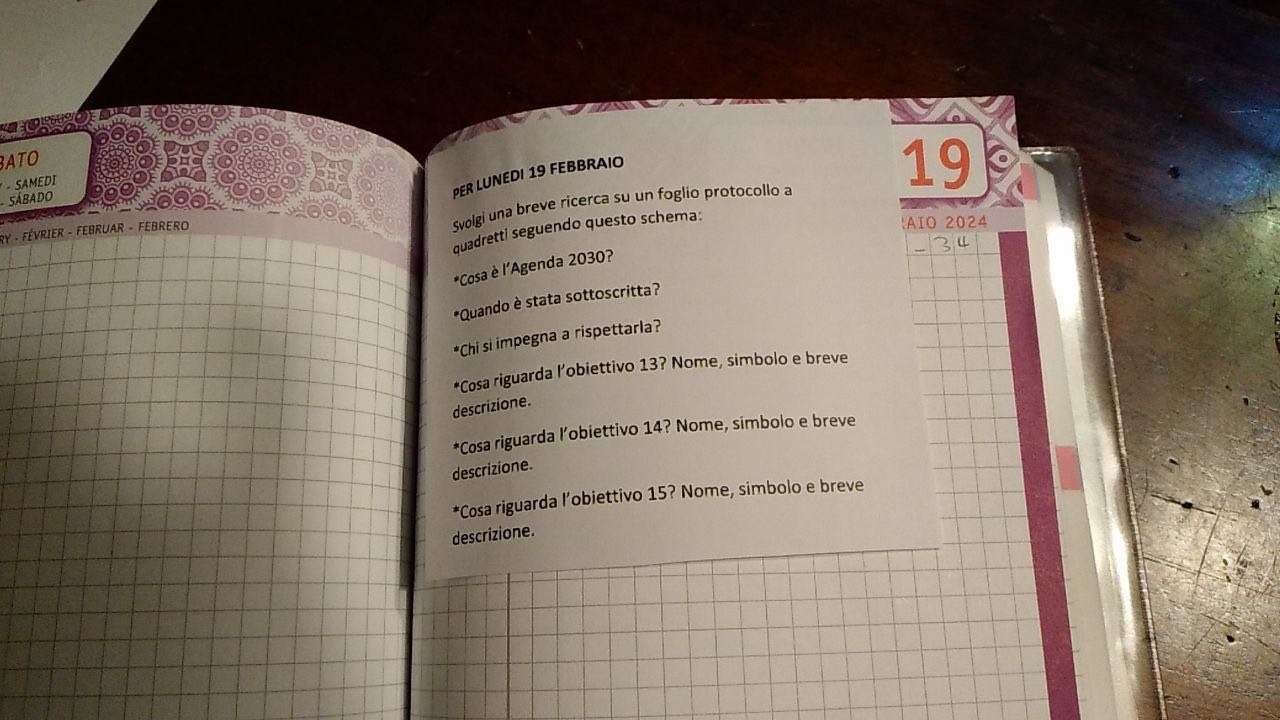 BATO
Y - SAMEDI
- SÁBADO
RY - FÉVRIER - FEBRUAR - FEBRERO
PER LUNEDI 19 FEBBRAIO
Svolgi una breve ricerca su un foglio protocollo a
quadretti seguendo questo schema:
*Cosa è l'Agenda 2030?
*Quando è stata sottoscritta?
*Chi si impegna a rispettarla?
*Cosa riguarda l'obiettivo 13? Nome, simbolo e breve
descrizione.
*Cosa riguarda l'obiettivo 14? Nome, simbolo e breve
descrizione.
*Cosa riguarda l'obiettivo 15? Nome, simbolo e breve
descrizione.
19
RAIO 2024
- 34